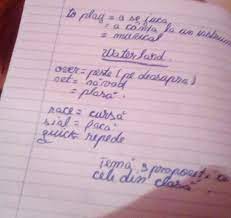 to play = a se juca
= a cânta la un instrum
= muzical
Waterland.
over = peste (pe deasupra)
net = năvod
= plasă.
race = cursă
sial = facă
quick = repede
Temă 3 propoziții cu
cele din clasă.